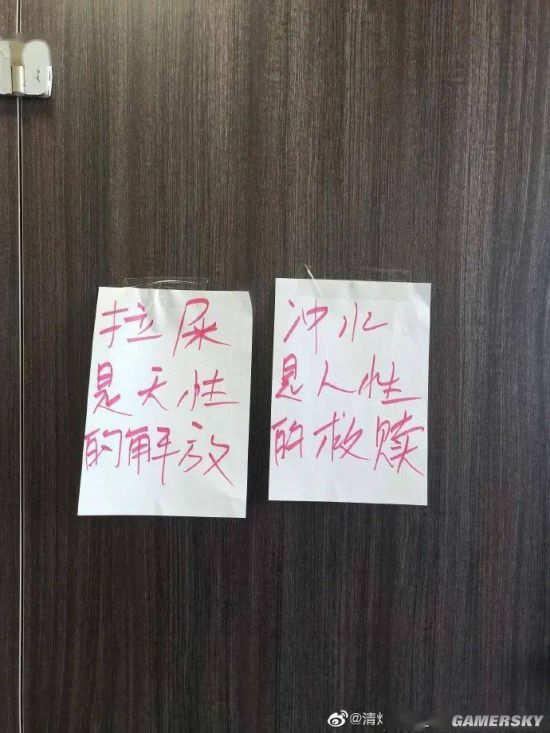 拉屎
是天性
的解放
冲水
是人性
的救赎
@清
GAMERSKY